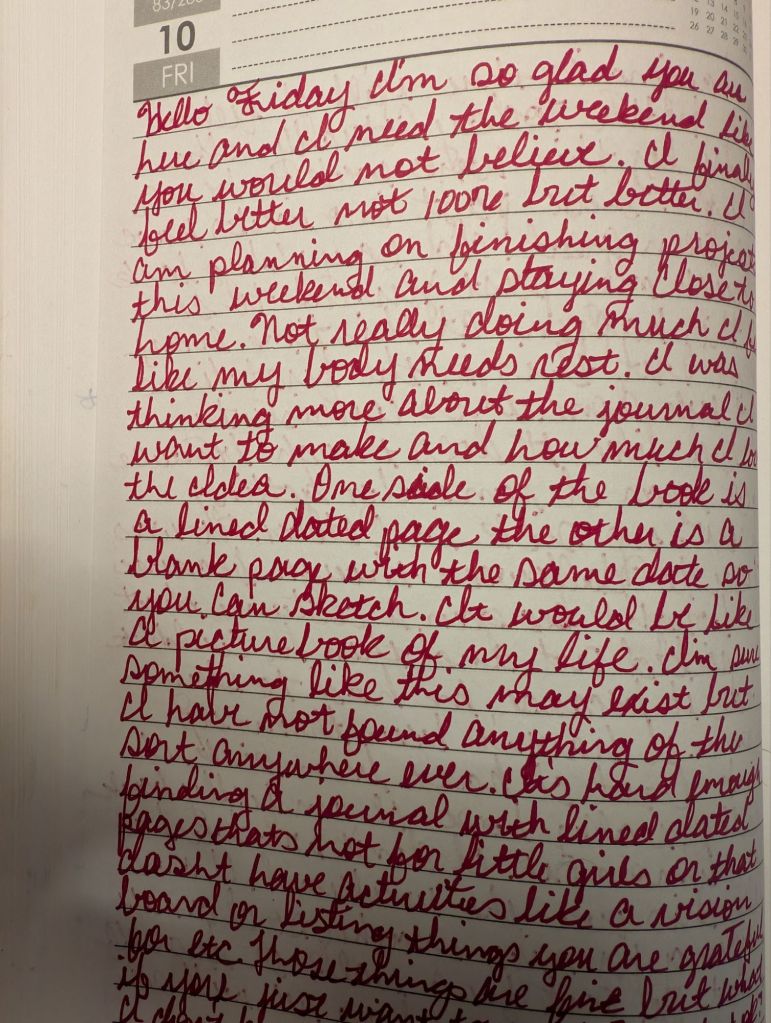 83/28
10
FRI
19 20 21 22
26 27 28 29
Hello Friday I'm so glad you are
here and I need the weekend like
you would not believe. I finally
feel better not 100% but better. I
am planning on finishing project
this weekend and staying close to
home. Not really doing much I
like my body needs rest. I was
thinking more about the journal I
want to make and how much I
the Idea. One side of the book is
a lined dated page the other is a
blank page with the same date so
you can sketch. It would be like
a picture book of my life. I'm sure
something like this may exist but
I have not found anything of the
sort anywhere ever. Its hard enough
finding a journal with lined dated
pages thats not for little girls or that
dosnt have activities like a vision
board or listing things you are grateful
for etc. Those things are fine but what
if your just want